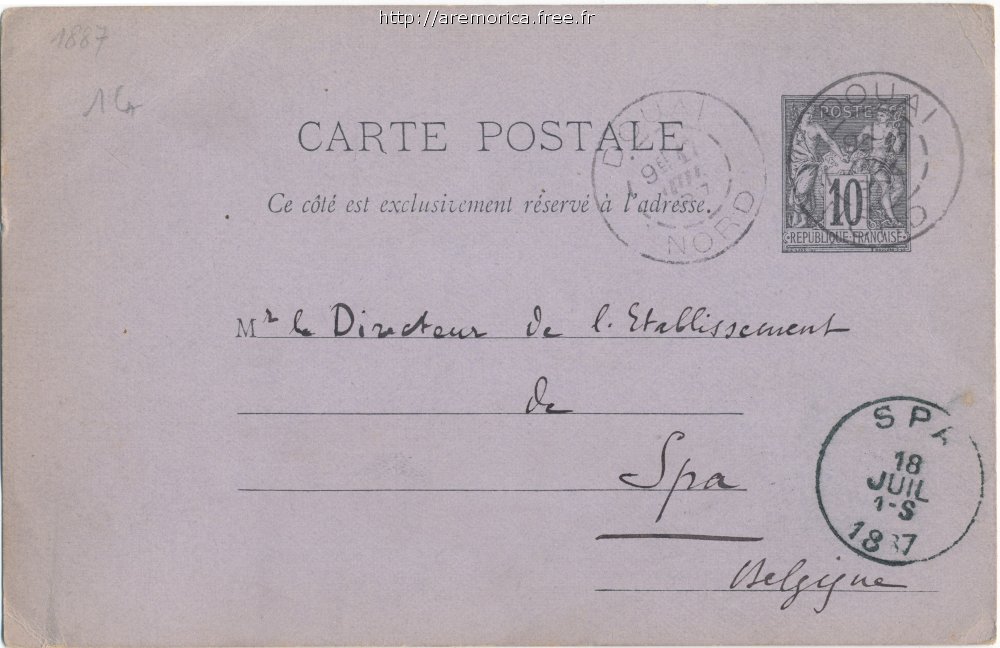 http://aremorica.free.fr
1887
CARTE POSTALE
Ce côté est exclusivement réservé à l'adresse.
DOUAI
9E
JUIL
NORD
POSTE
10
REPUBLIQUE FRANCAISE
DOUAI
Mr le Directeur de l'Etablissement
de
Spa
Belgique
SPA
18
JUIL
1-S
1887